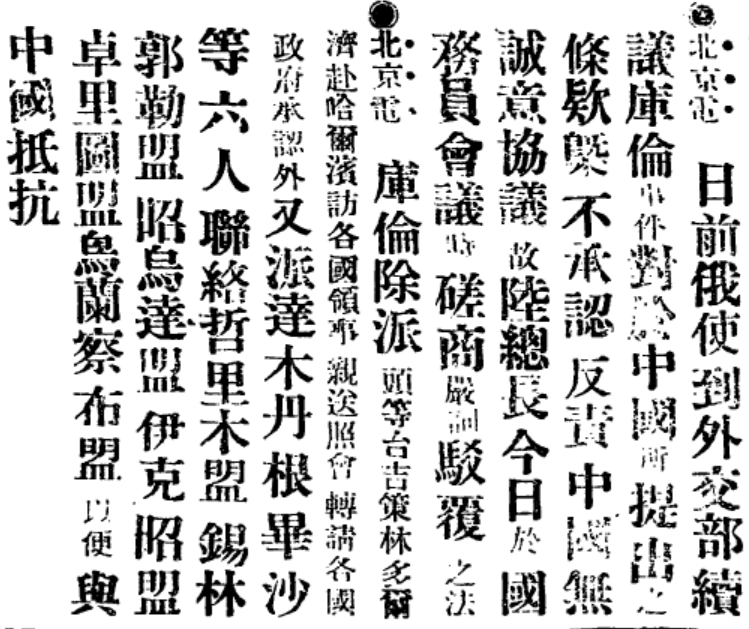 北京電 日前俄使到外交部續
議庫倫事件對於中國所提出之
條欵槩不承認反責中國無
誠意協議故陸總長今日於國
務員會議時磋商嚴詞駁覆之法
北京電 庫倫除派頭等台吉策林多爾
濟赴哈爾濱訪各國領事親送照會轉請各國
政府承認外又派達木丹根畢沙
等六人聯絡哲里木盟錫林
郭勒盟昭烏達盟伊克昭盟
卓里圖盟烏蘭察布盟以便與
中國抵抗